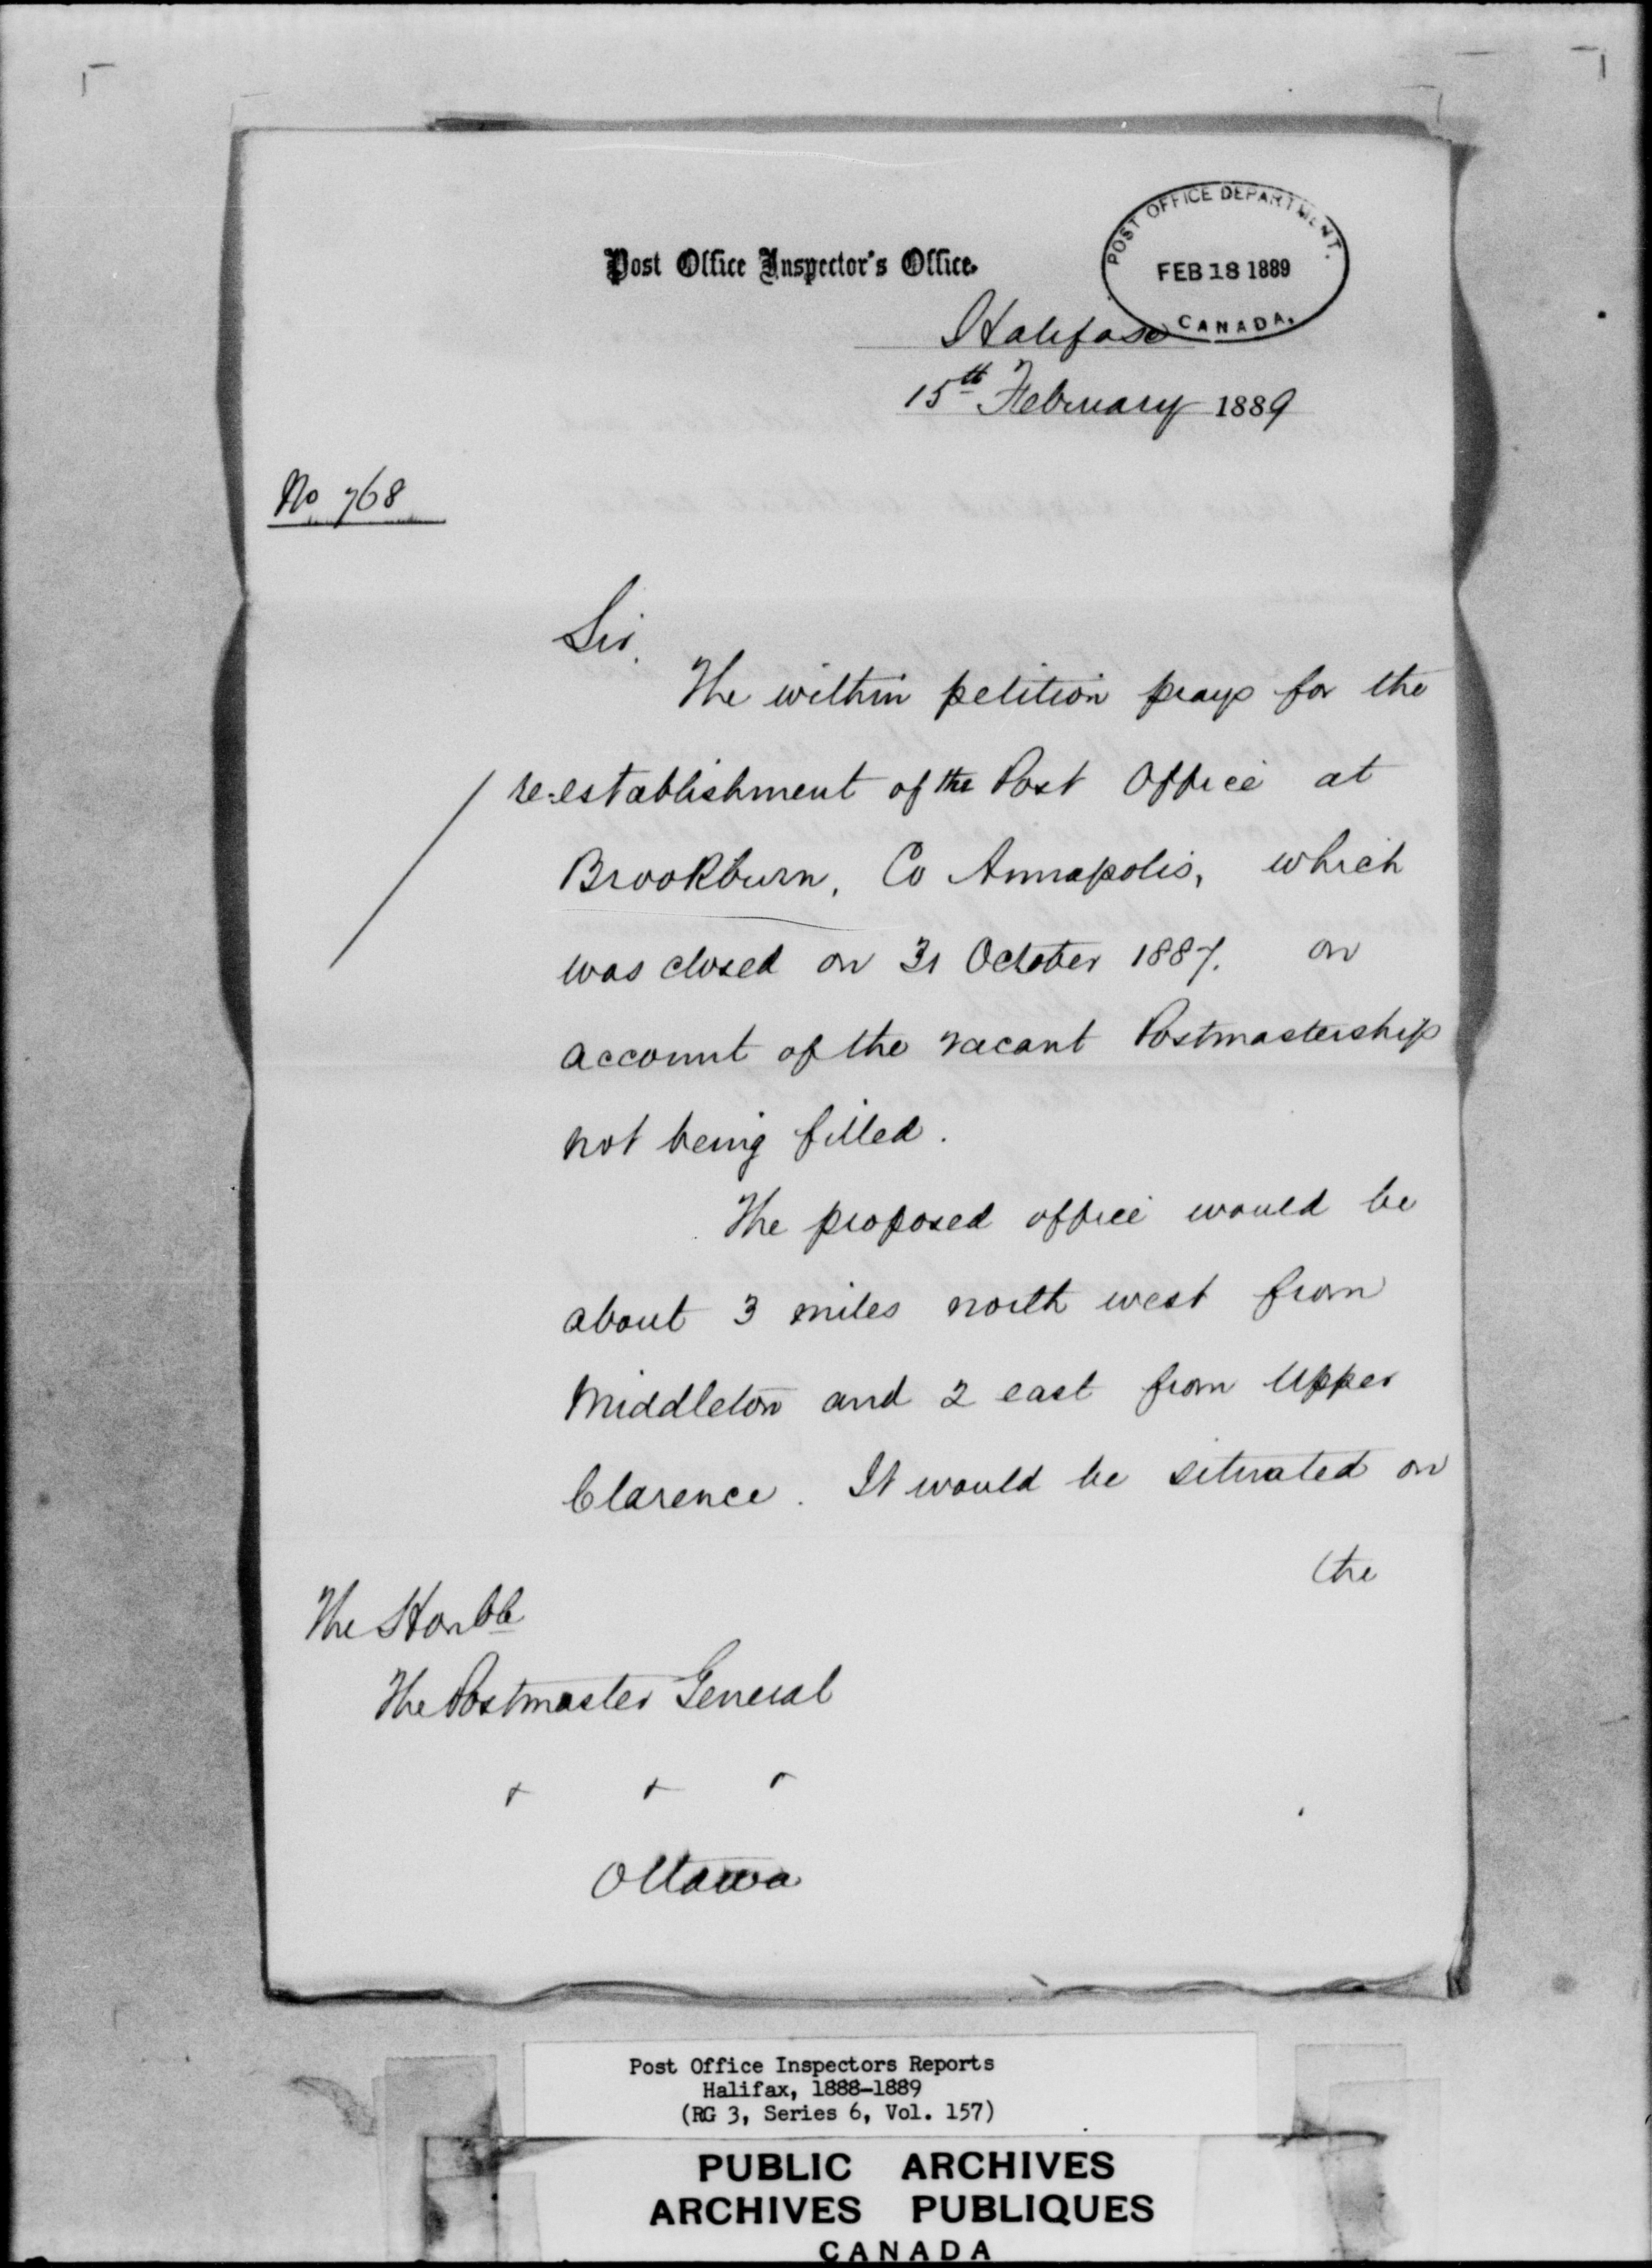 Post Office Inspector's Office.
POST OFFICE DEPARTMENT.
FEB 18 1889
CANADA.
Halifax
15th February 1889
No 768
Sir.
The within petition prays for the
re-establishment of the Post Office at
Brookburn, Co Annapolis, which
was closed on 31 October 1887. on
account of the vacant Postmastership
not being filled.
The proposed office would be
about 3 miles north west from
Middleton and 2 east from Upper
Clarence. It would be situated on
(the
The Honble
The Postmaster General
Ottawa
Post Office Inspectors Reports
Halifax, 1888-1889
(RG 3, Series 6, Vol. 157)
PUBLIC ARCHIVES
ARCHIVES PUBLIQUES
CANADA